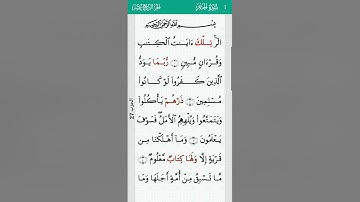 سُورَةُ الحِجْرِ
بِسْمِ اللَّهِ الرَّحْمَٰنِ الرَّحِيمِ
الٓر ۚ تِلْكَ ءَايَٰتُ الْكِتَٰبِ
وَقُرْءَانٍ مُّبِينٍ ۝ رُّبَمَا يَوَدُّ
الَّذِينَ كَفَرُوا۟ لَوْ كَانُوا۟
مُسْلِمِينَ ۝ ذَرْهُمْ يَأْكُلُوا۟
وَيَتَمَتَّعُوا۟ وَيُلْهِهِمُ الْأَمَلُ ۖ فَسَوْفَ
يَعْلَمُونَ ۝ وَمَآ أَهْلَكْنَا مِن
قَرْيَةٍ إِلَّا وَلَهَا كِتَابٌ مَّعْلُومٌ ۝
مَّا تَسْبِقُ مِنْ أُمَّةٍ أَجَلَهَا وَمَا